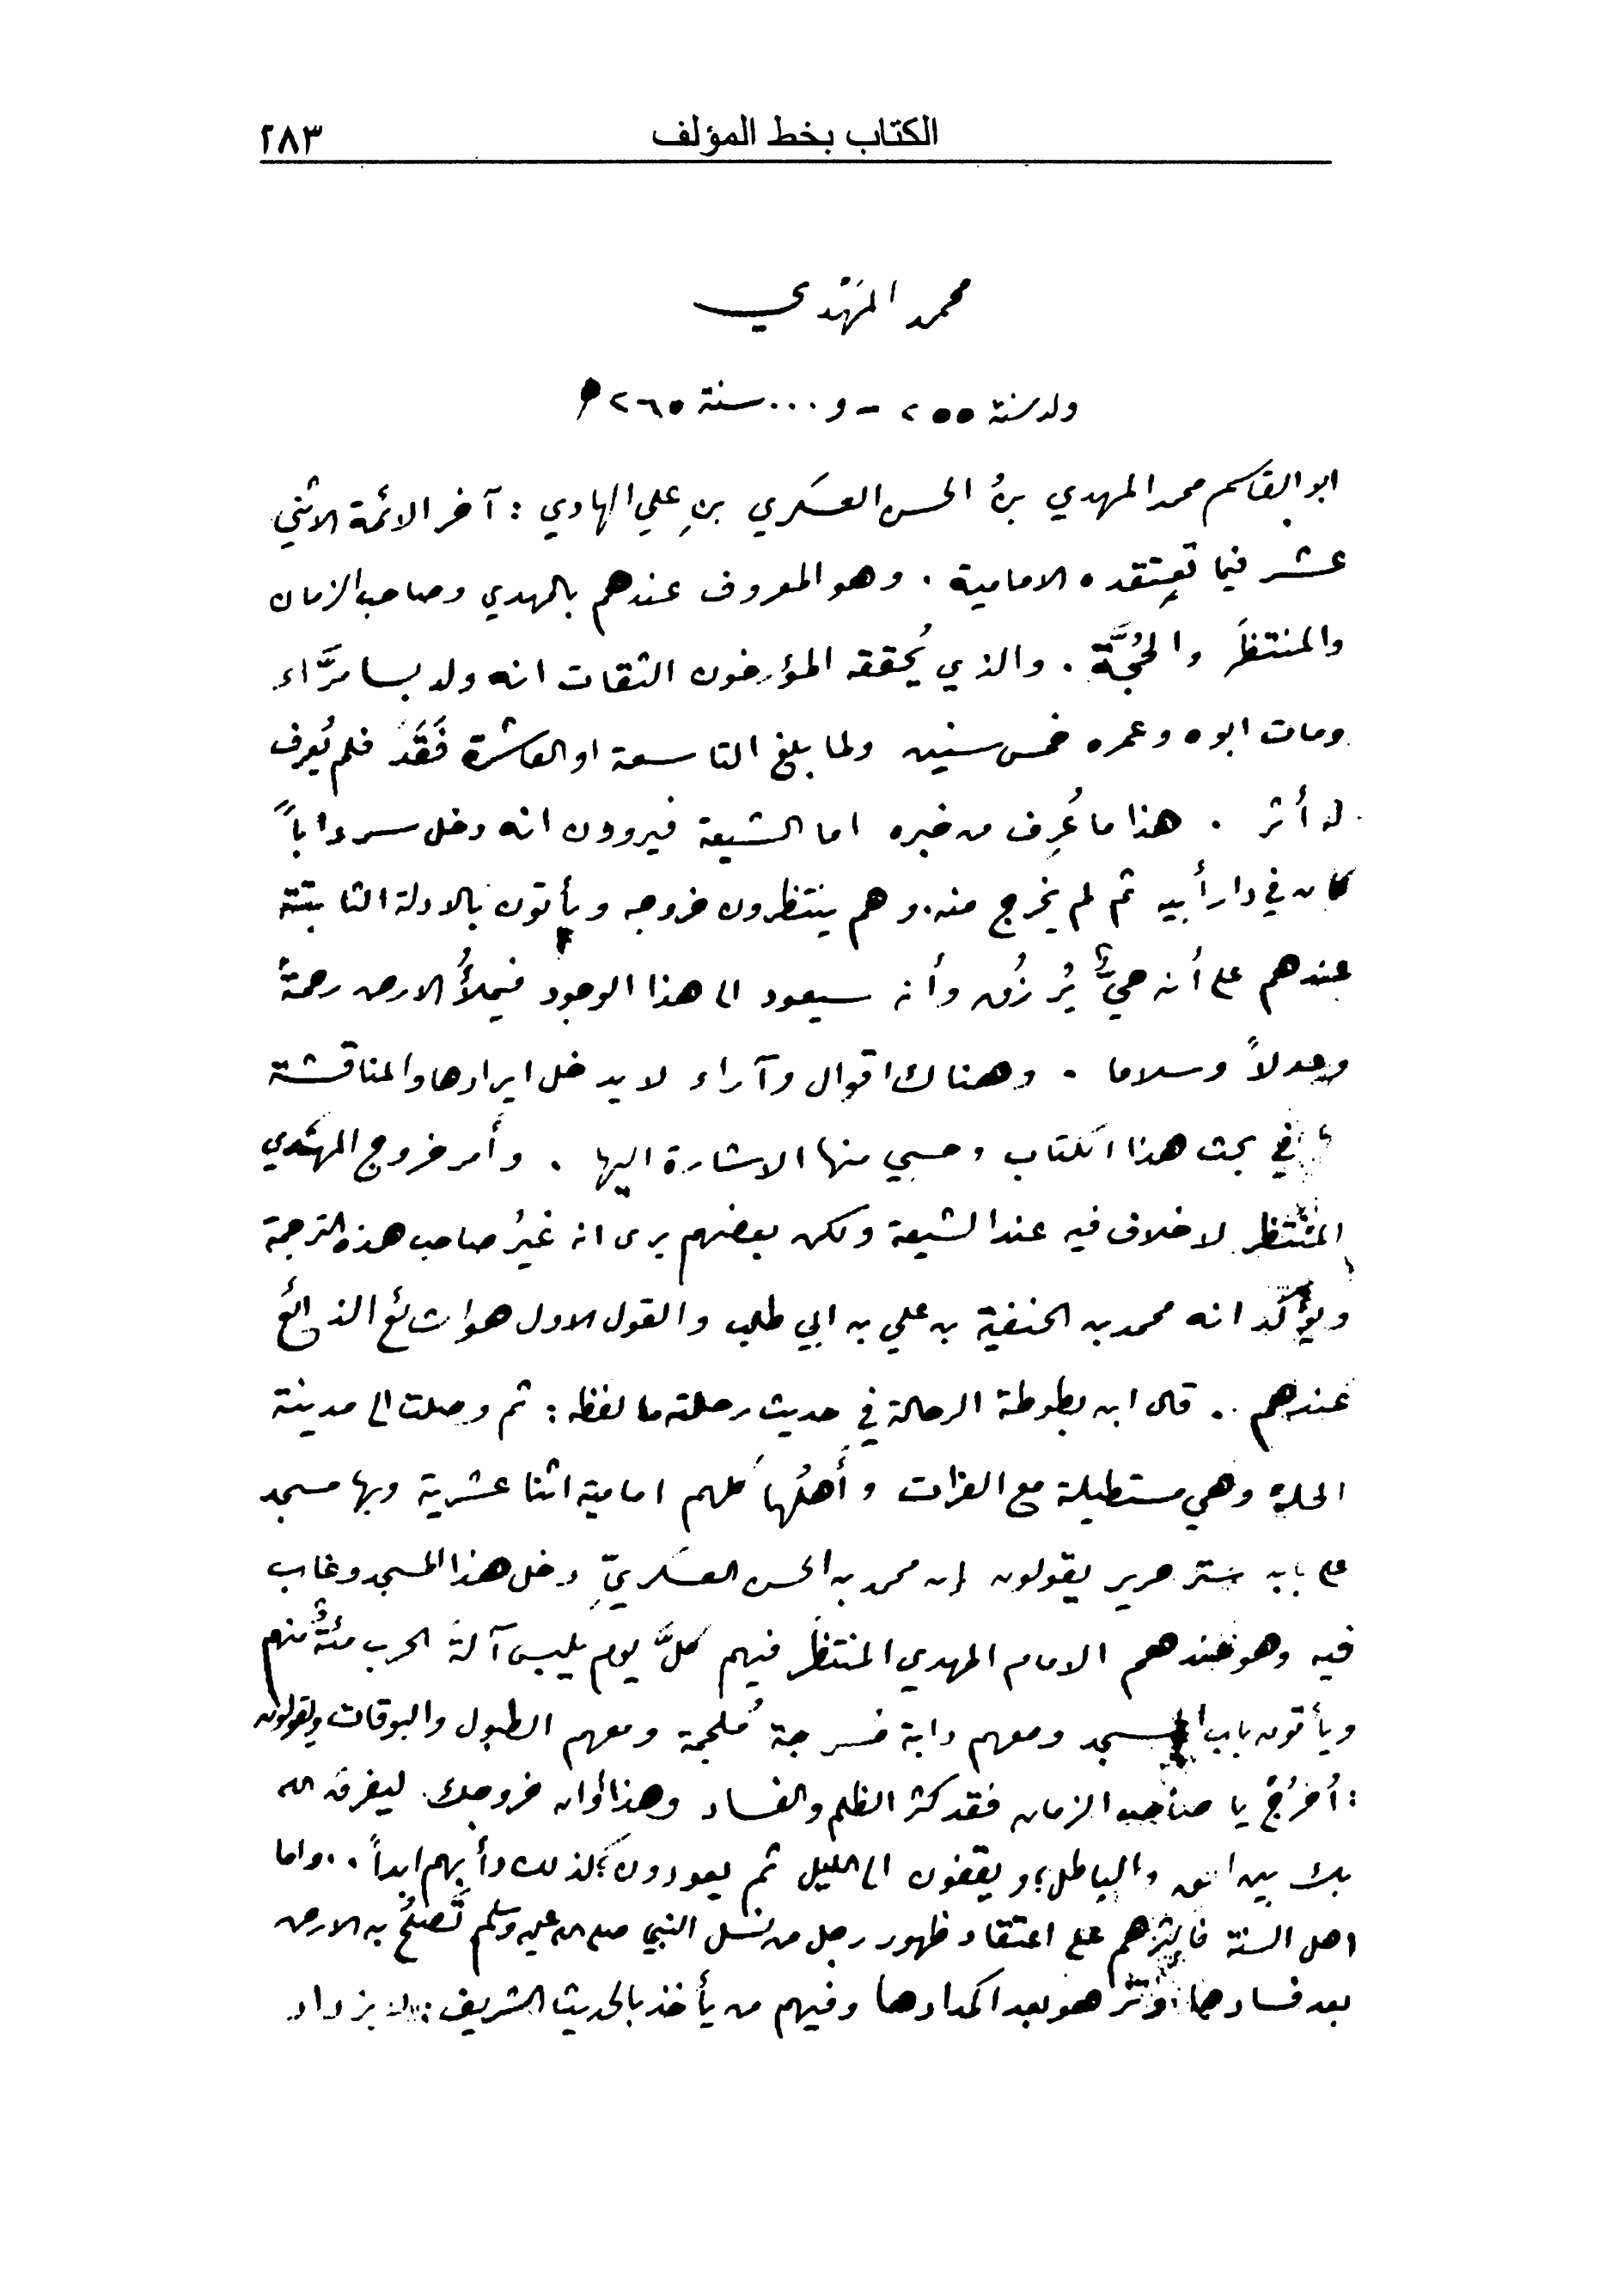 الكتاب بخط المؤلف ٢٨٣
محمد المَهْدي
ولد سنة ٢٥٥ - و... سنة ٢٦٥ ه
ابو القاسم محمد المهدي بنُ الحسن العسَكري بنِ علي الهادي : آخر الائمة الاثني
عشر فيما تعتقده الامامية . وهو المعروف عندهم بالمهدي وصاحب الزمان
والمنتظَر والحُجَّة . والذي يُحققه المؤرخون الثقات انه ولد بسامرَّاء
ومات ابوه وعمره خمس سنين ولما بلغ التاسعة او العاشرة فَقَدَ فلم يُعرف
له أثر . هذا ما عُرِف من خبره اما الشيعة فيروون انه دخل سرداباً
كان في دار أبيه ثم لم يخرج منه . وهم ينتظرون خروجه ويأتون بالادلة الثابتة
عندهم على أنه حيٌّ يُرزُق وأنه سيعود الى هذا الوجود فيملأُ الارض رحمةً
وعدلاً وسلاما . وهناك اقوال وآراء لا يدخل ايرادها والمناقشة
في بحث هذا الكتاب وحسبي منها الاشارة اليها . وأمر خروج المهَدي
المنتظر لا خلاف فيه عند الشيعة ولكن بعضهم يرى انه غيرُ صاحب هذه الترجمة
ويؤكّد انه محمد بن الحنفية بن علي بن ابي طالب والقول الاول هو الشائع الذائع
عندهم .. قال ابن بطوطة الرحالة في حديث رحلته ما لفظه : ثم وصلت الى مدينة
الحلة وهي مستطيلة مع الفرات وأَهلُها كلهم امامية اثنا عشرية وبها مسجد
على بابه ستر حرير يقولون إن محمد بن الحسن العسكريِّ دخل هذا المسجد وغاب
فيه وهو عندهم الامام المهدي المنتظَر فيهم كلَّ يوم يلبس آلةَ الحرب مئةٌ منهم
ويأتون باب المسجد ومعهم دابة مسرجة مُلجمة ومعهم الطبول والبوقات ويقولون
: أُخرُجْ يا صاحب الزمان فقد كثر الظلم والفساد وهذا اوان خروجك ليفرق الله
بك بين الحق والباطل؛ ويقفون الى الليل ثم يعودون؛ كذلك دأبهم ابداً .. واما
اهل السنة فأكثرهم على اعتقاد ظهور رجل من نسل النبي صلى الله عليه وسلم تَصلحُ به الارض
بعد فسادها وتزهو بعد اكمدادها وفيهم من يأخذ بالحديث الشريف : لا يزداد